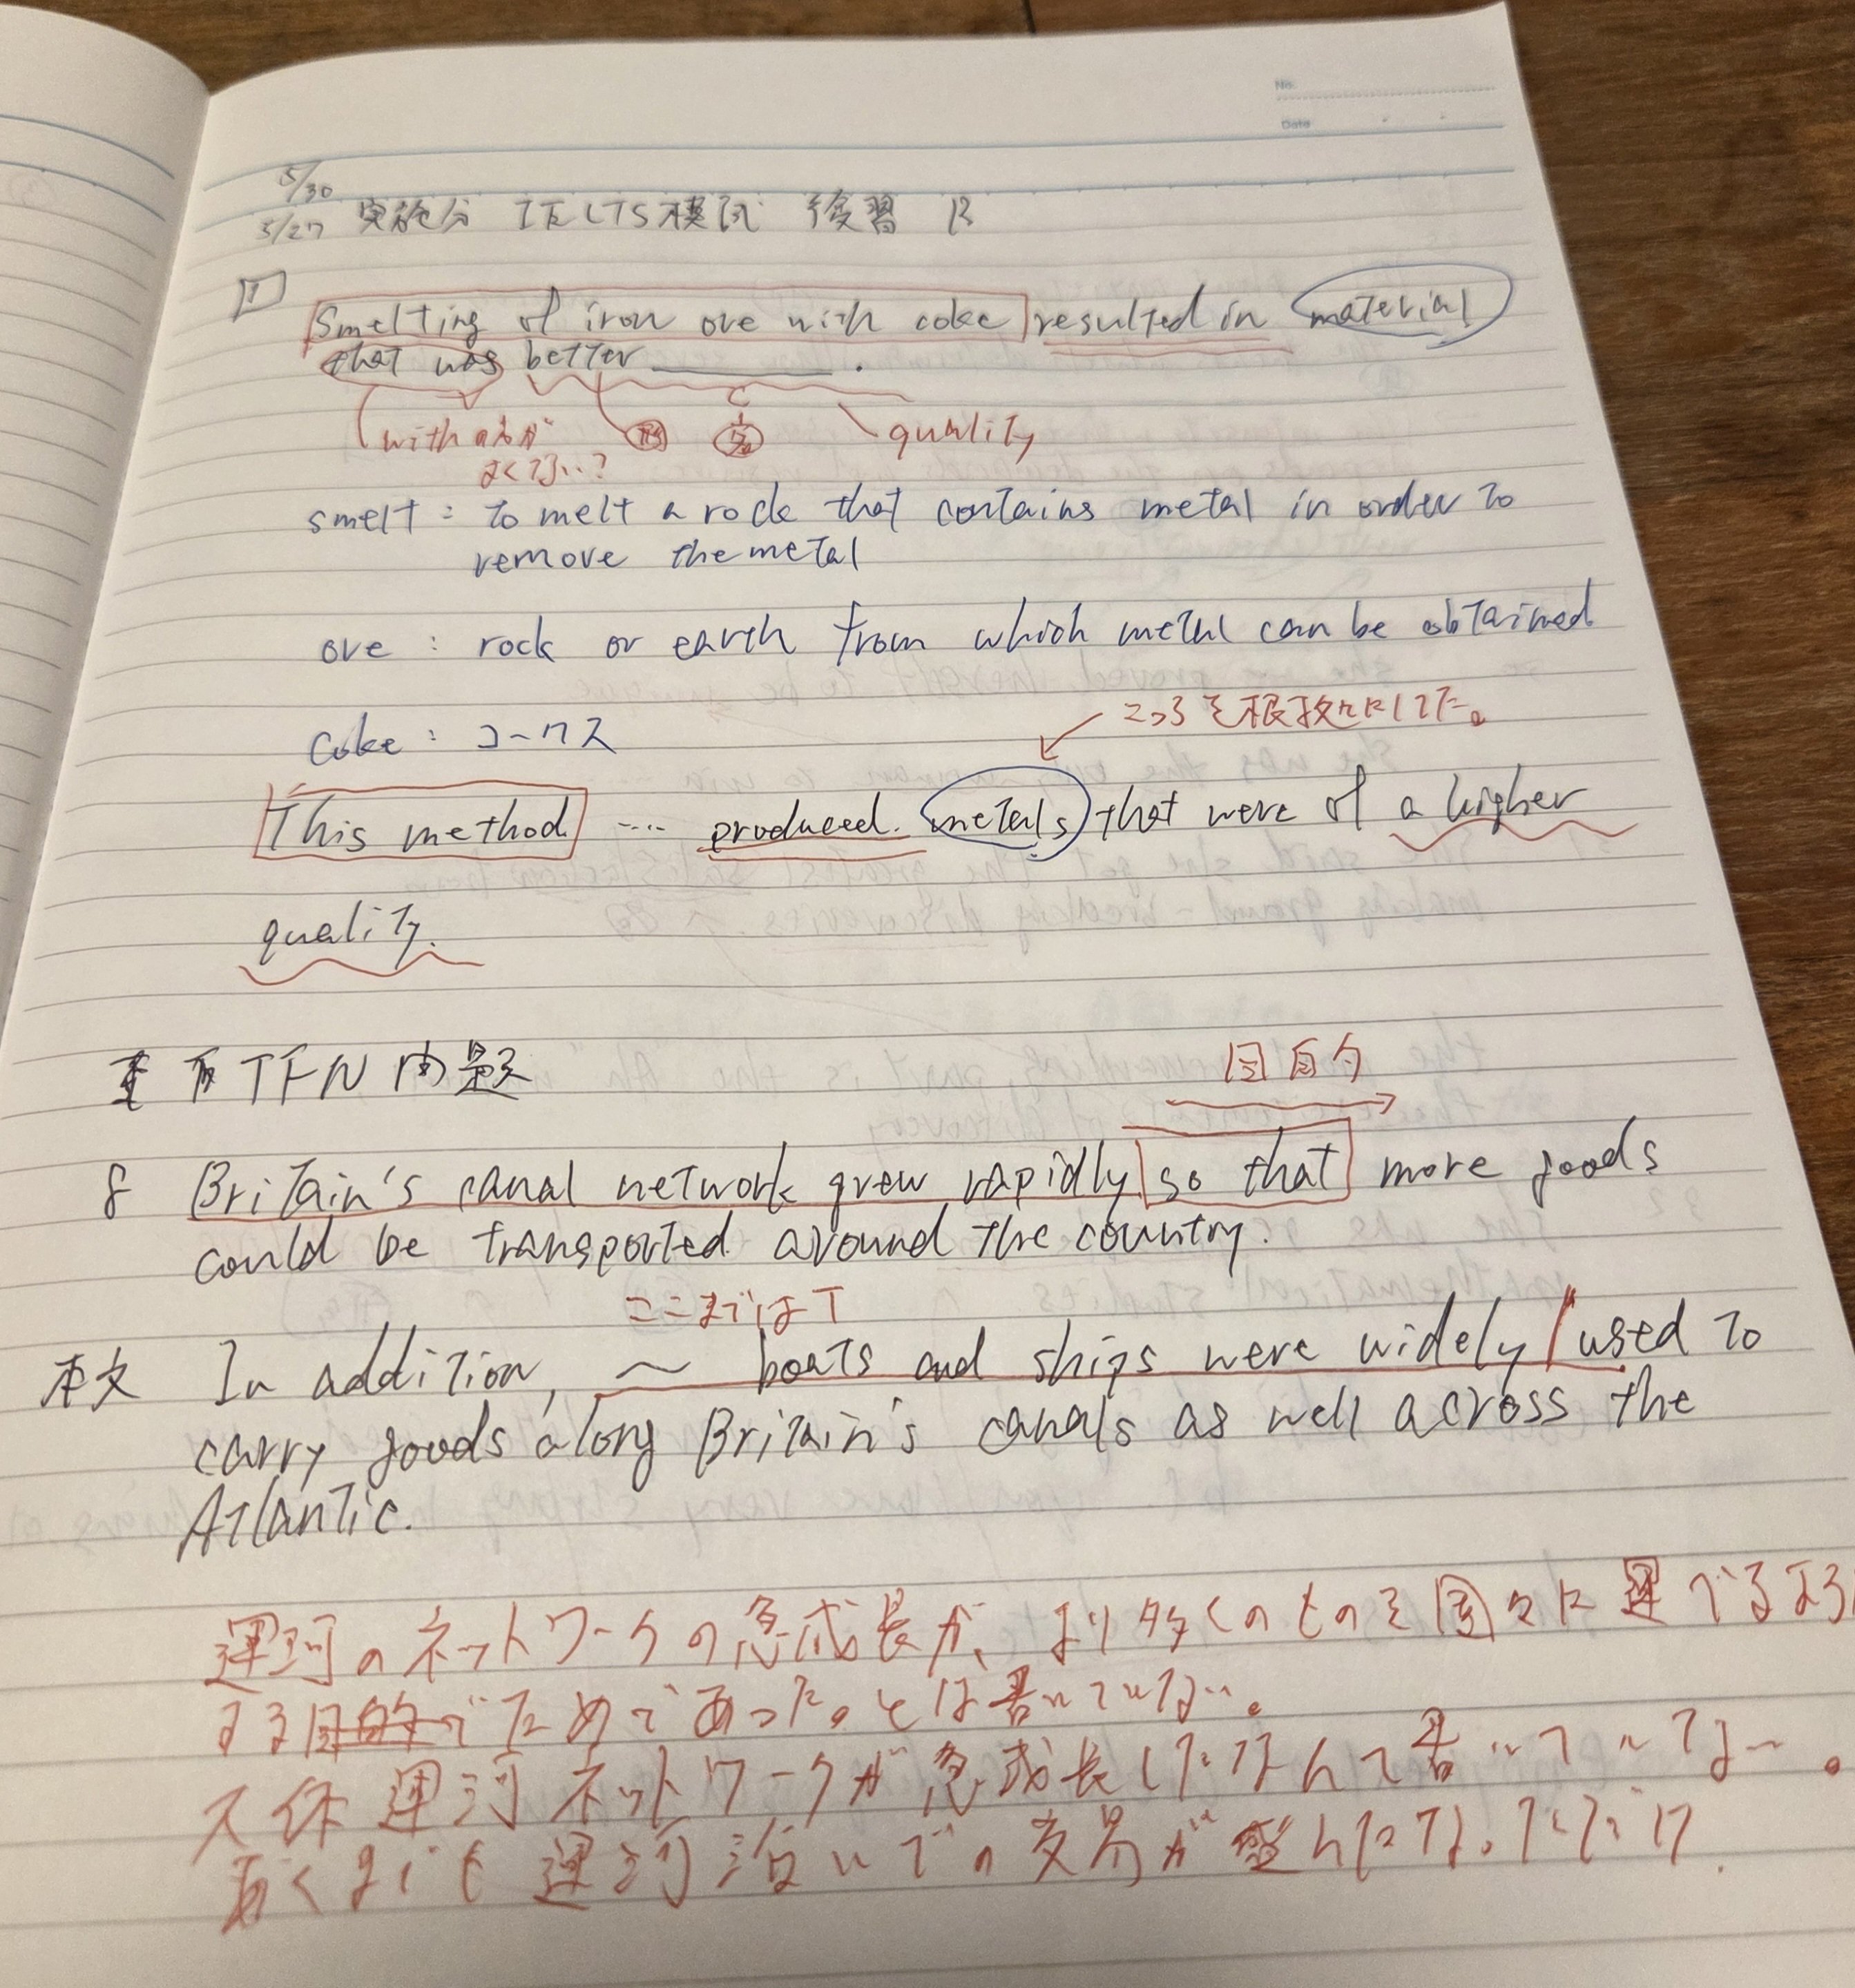 No.
Date
5/30
5/27 実施分 IELTS模試 復習 R
1 Smelting of iron ore with coke resulted in material
that was better ________ .
C
with の方が 形 名 quality
よくない?
smelt : to melt a rock that contains metal in order to
remove the metal
ore : rock or earth from which metal can be obtained
こっちを根拠にしてた。
coke : コークス
This method .... produced metals that were of a higher
quality.
TFN問題
目的
8 Britain's canal network grew rapidly so that more goods
could be transported around the country.
ここまではT
本文 In addition, 〜 boats and ships were widely / used to
carry goods along Britain's canals as well across the
Atlantic.
運河のネットワークの急成長が、より多くのものを国々に運べるよう
する目的でためであった。とは書いていない。
大体運河ネットワークが急成長したなんて書いていてない。
あくまでも運河沿いでの交易が盛んになっただけ.